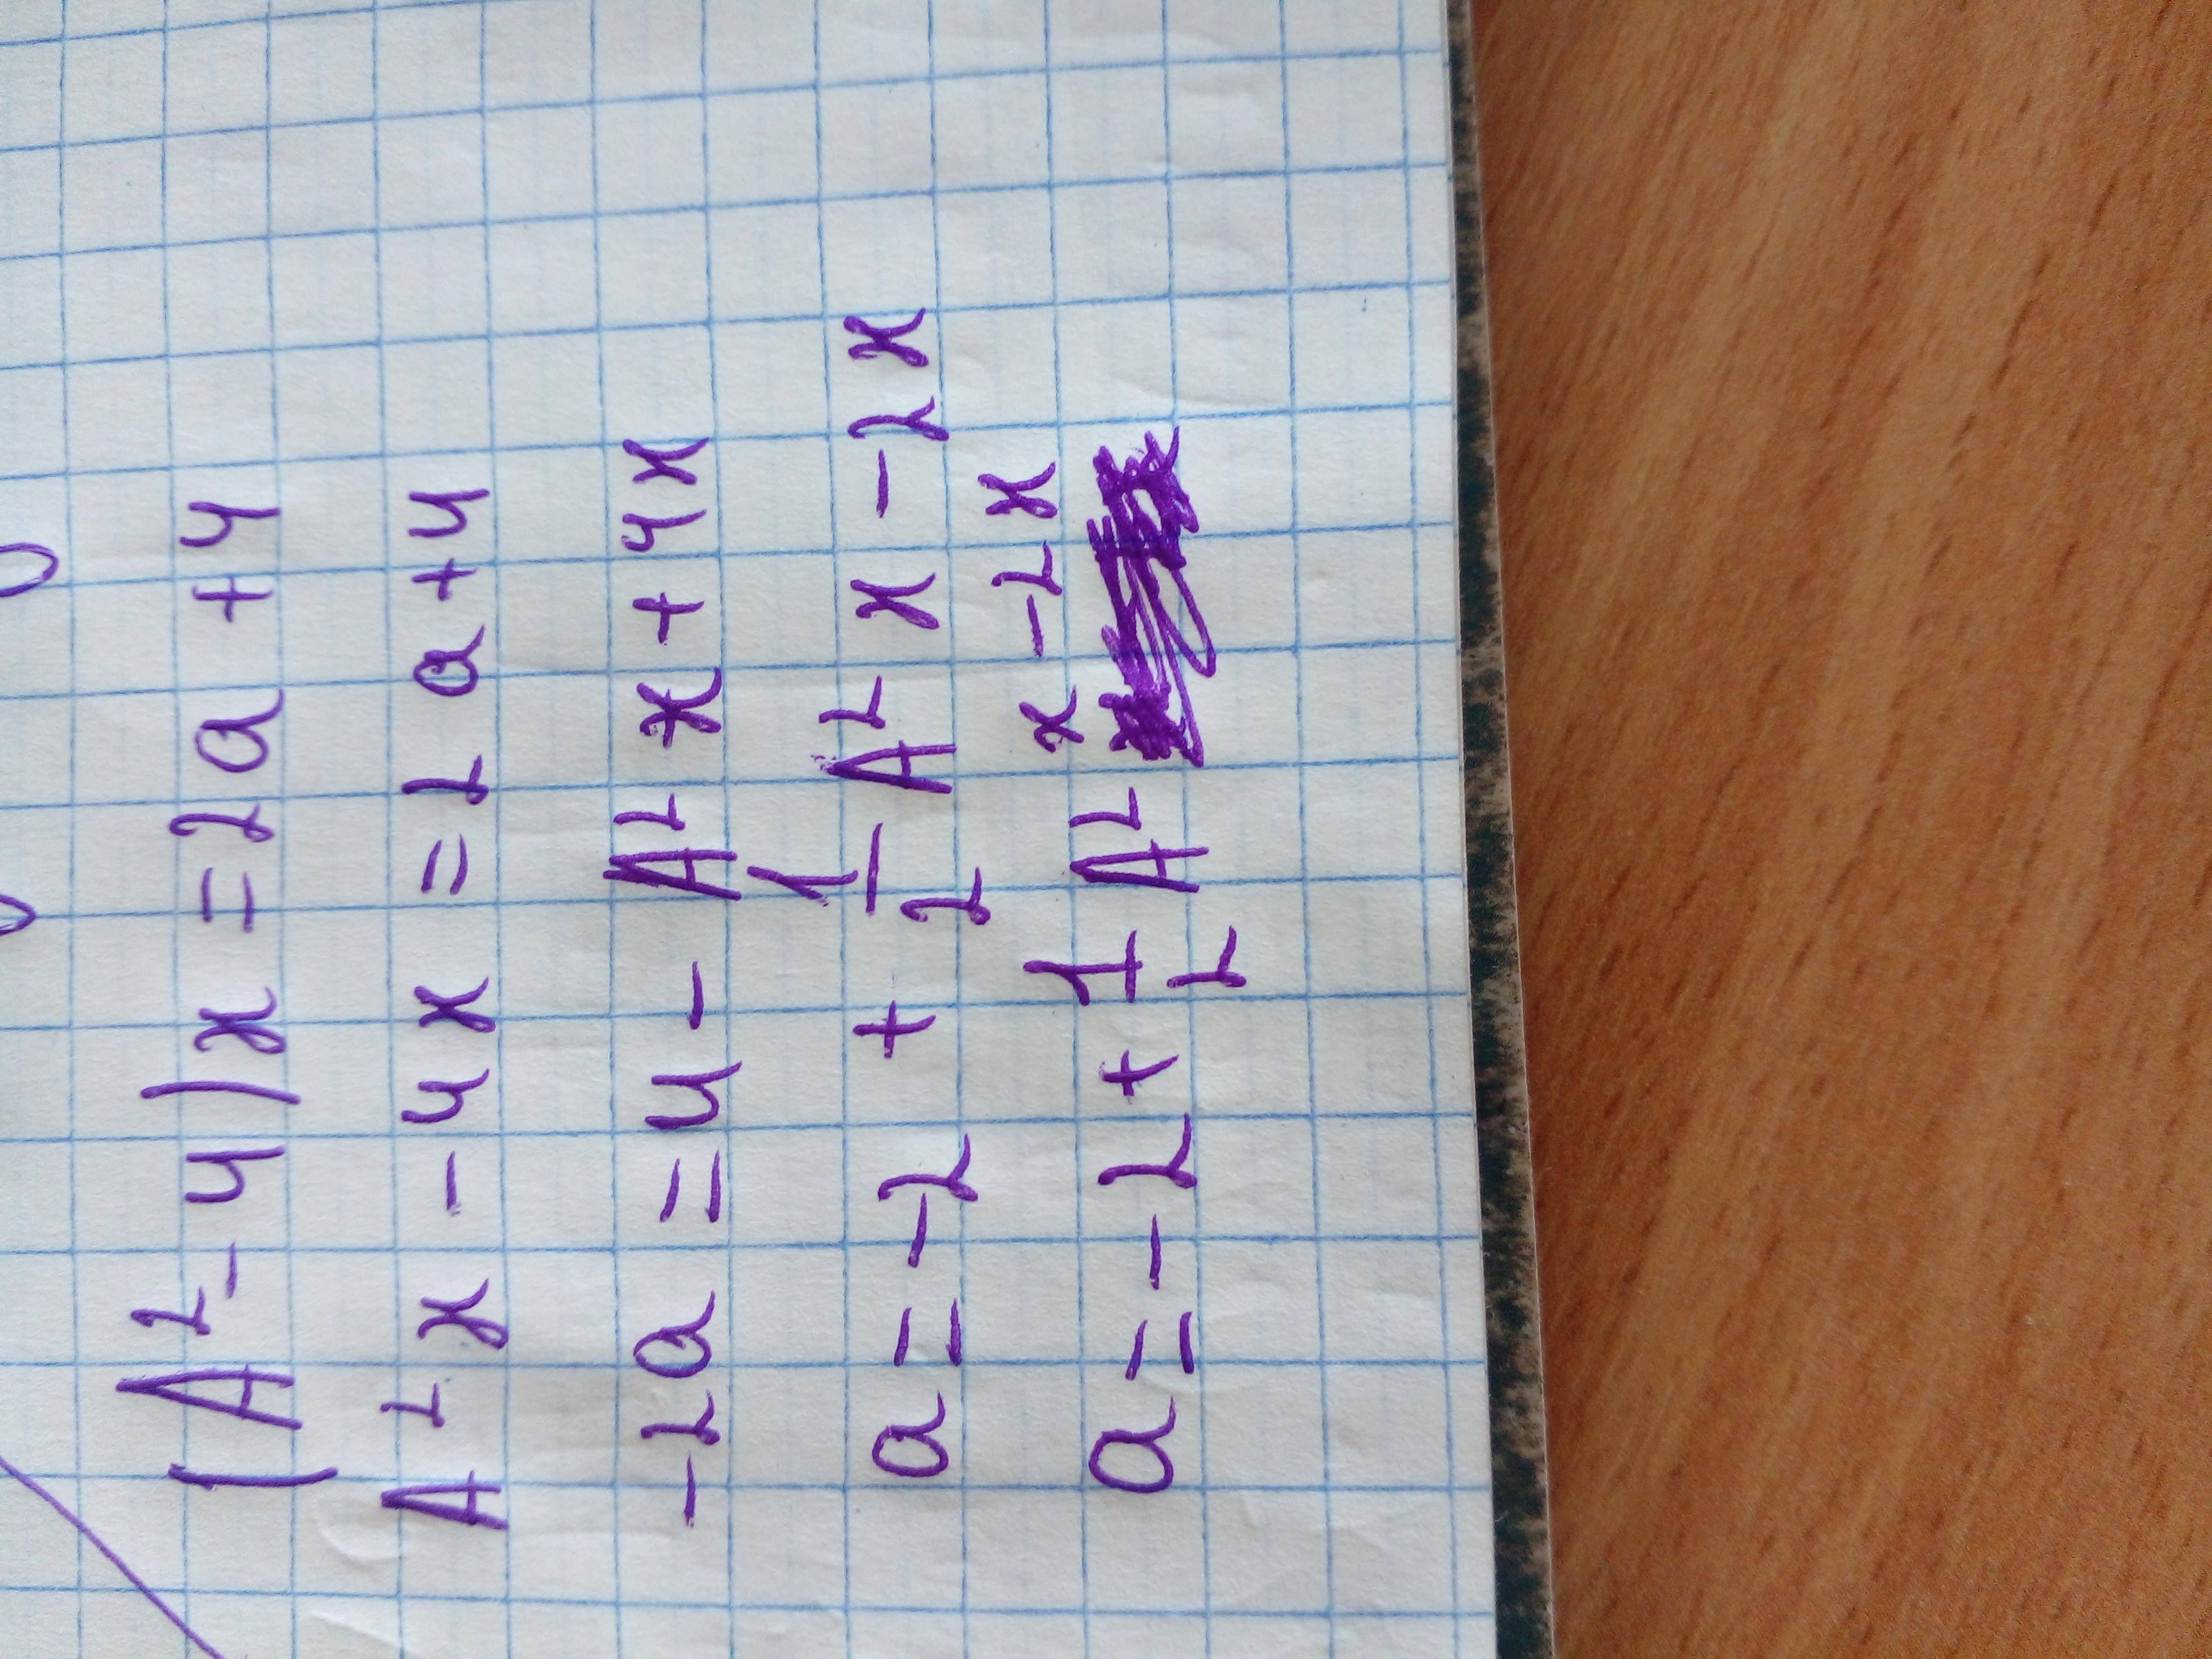 (A² - 4)x = 2a + 4
A²x - 4x = 2a + 4
-2a = 4 - A²x + 4x
a = -2 + 1/2 A²x - 2x
a = -2 + 1/2 A²x - 2x